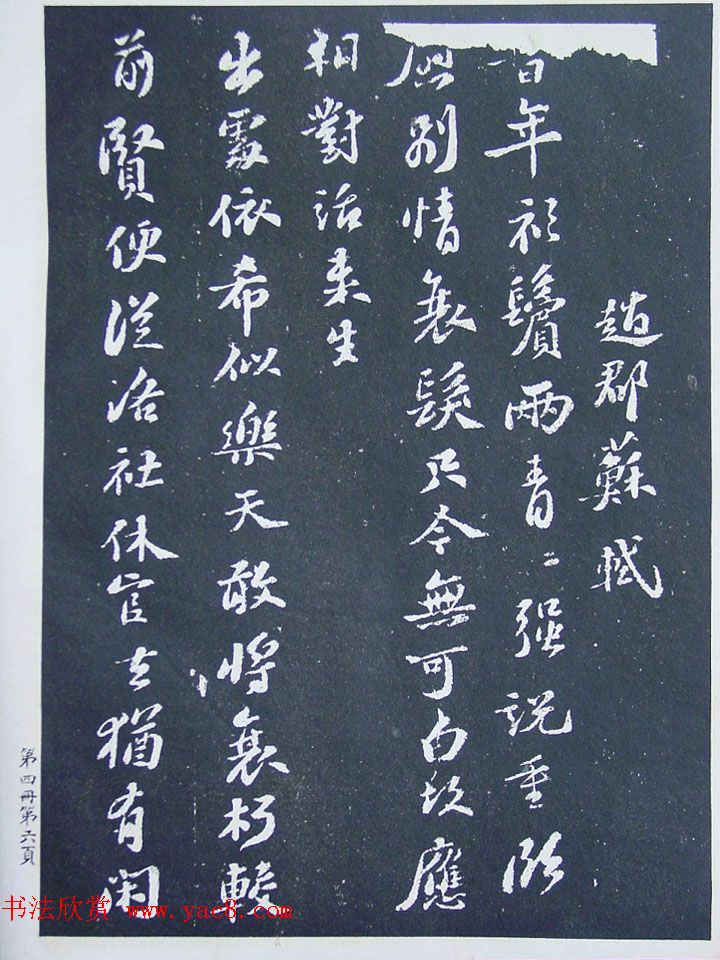 趙郡蘇軾
年衫鬢兩青〻強說重臨
別情衰髮只今無可白故應
相對話來生
出處依希似樂天敢將衰朽較
前賢便從洛社休官去猶有閑
第四冊第六頁
书法欣赏 www.yac8.com